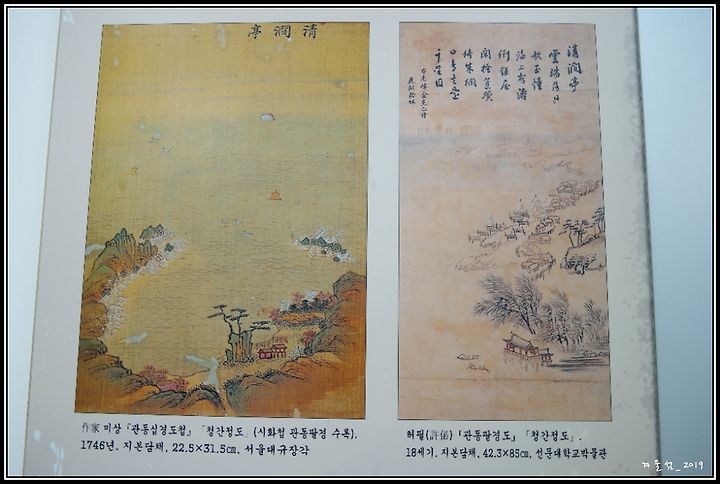 清澗亭
作家 미상『관동십경도첩』「청간정도」(시화첩 관동팔경 수록).
1746년. 지본담채, 22.5×31.5cm, 서울대규장각
清澗亭
雲端落日
玉幢
海上
倒銀屋
倚朱欄
千里目
허필(許佖)『관동팔경도』「청간정도」.
18세기. 지본담채, 42.3×85cm, 선문대학교박물관
겨울섬_2019